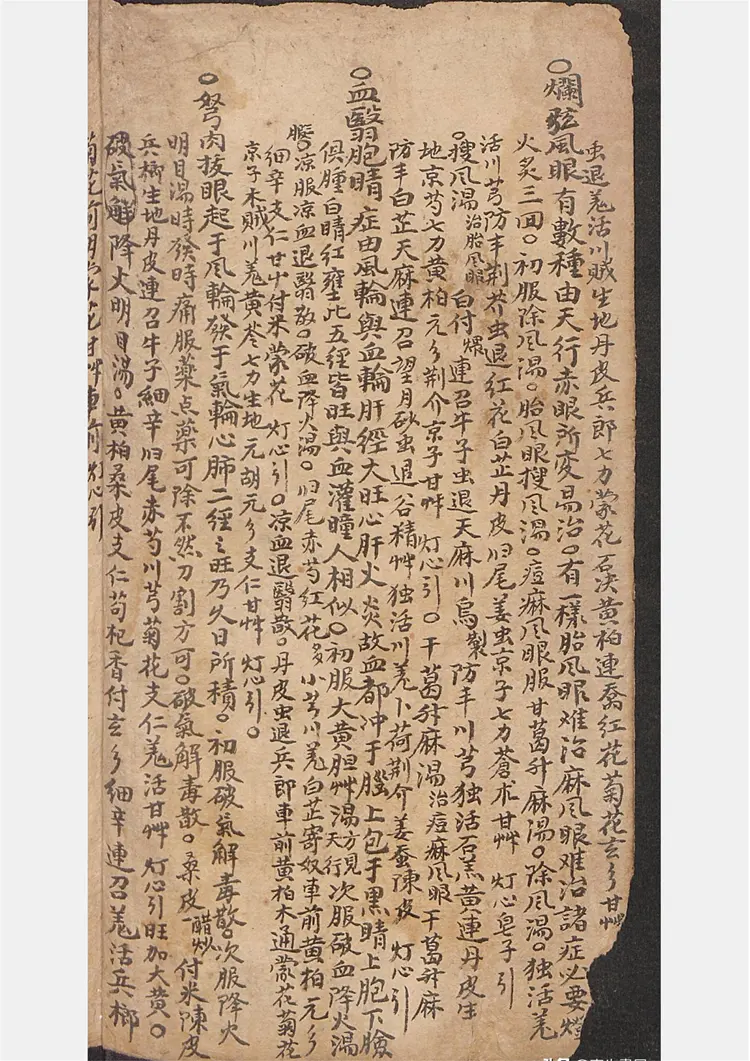 虫退羗活川贼生地丹皮兵郎七力蒙花石决黄柏連蚕红花菊花玄参甘艸
○爛弦風眼有數種由天行赤眼所变易治○有一樣胎风眼难治麻风眼难治諸症必要灯
火炙三回○初服除风湯○胎风眼搜风湯○痘麻风眼服甘葛升麻湯○除风湯○独活羗
活川芎防丰荆芥虫退红花白芷丹皮归尾姜虫京子七力蒼术甘艸 灯心皂子引
○搜风湯治胎风眼 白付煨連召牛子虫退天麻川烏製防丰川芎独活石羔黄連丹皮生
地京芍七力黄柏元参荆介京子甘艸 灯心引○干葛升麻湯治痘麻风眼干葛升麻
防丰白芷天麻連召望月砂虫退谷精艸独活川羗卜荷荆介姜蚕陳皮 灯心引
○血翳胞睛 症由風輪與血輪肝經大旺心肝火炎故血都冲于腦上包于黒睛上胞下臉
俱腫白睛红壅此五經皆旺與血灌瞳人相似○初服大黄胆艸湯方見天行次服破血降火湯
○凉服凉血退翳散○破血降火湯○归尾赤芍红花多小芎川羗白芷寄奴車前黄柏元参
细辛支仁甘中付米蒙花 灯心引○凉血退翳散○丹皮虫退兵郎車前黄柏木通蒙花菊花
京子木贼川羗黄芩七力生地元胡元参支仁甘艸 灯心引○
○弩肉扳眼起于风輪發于氣輪心肺二經之旺乃久日所積○初服破氣解毒散○次服降火
明目湯時發時痛服藥点藥可除不然刀割方可○破氣解毒散○桑皮醋炒付米陳皮
兵榔生地丹皮連召牛子細辛归尾赤芍川芎菊花支仁羗活甘艸 灯心引旺加大黄○
破氣解降火明目湯○黄柏桑皮支仁苟杞香付玄参细辛連召羗活兵榔
菊花前甘艸車前灯心引